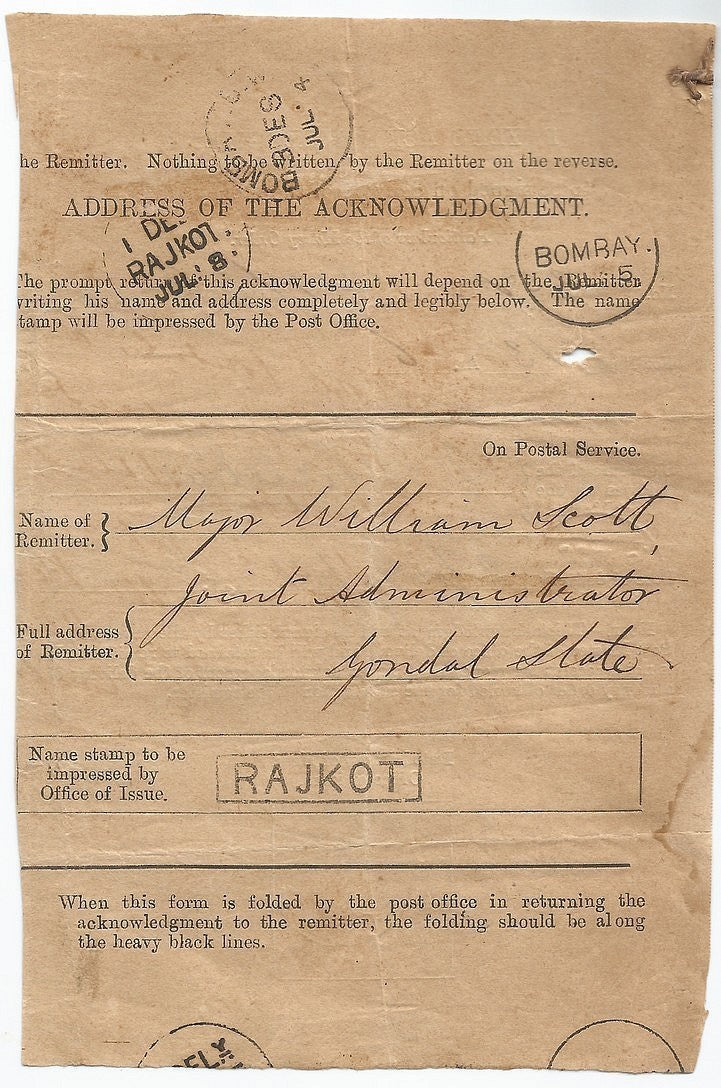 BOMBAY
3 DES
JUL. 4
he Remitter. Nothing to be written by the Remitter on the reverse.
ADDRESS OF THE ACKNOWLEDGMENT.
1 DE
RAJKOT.
JUL. 8.
BOMBAY.
JUL 5
The prompt return of this acknowledgment will depend on the Remitter
writing his name and address completely and legibly below. The name
tamp will be impressed by the Post Office.
On Postal Service.
Name of Remitter. } Major William Scott,
Joint Administrator
Full address of Remitter. { Gondal State
Name stamp to be
impressed by
Office of Issue.
RAJKOT
When this form is folded by the post office in returning the
acknowledgment to the remitter, the folding should be along
the heavy black lines.
ELY